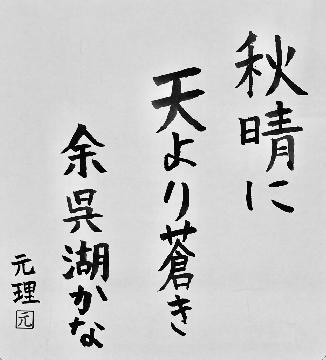 秋晴に
天より蒼き
余呉湖かな
元理
元